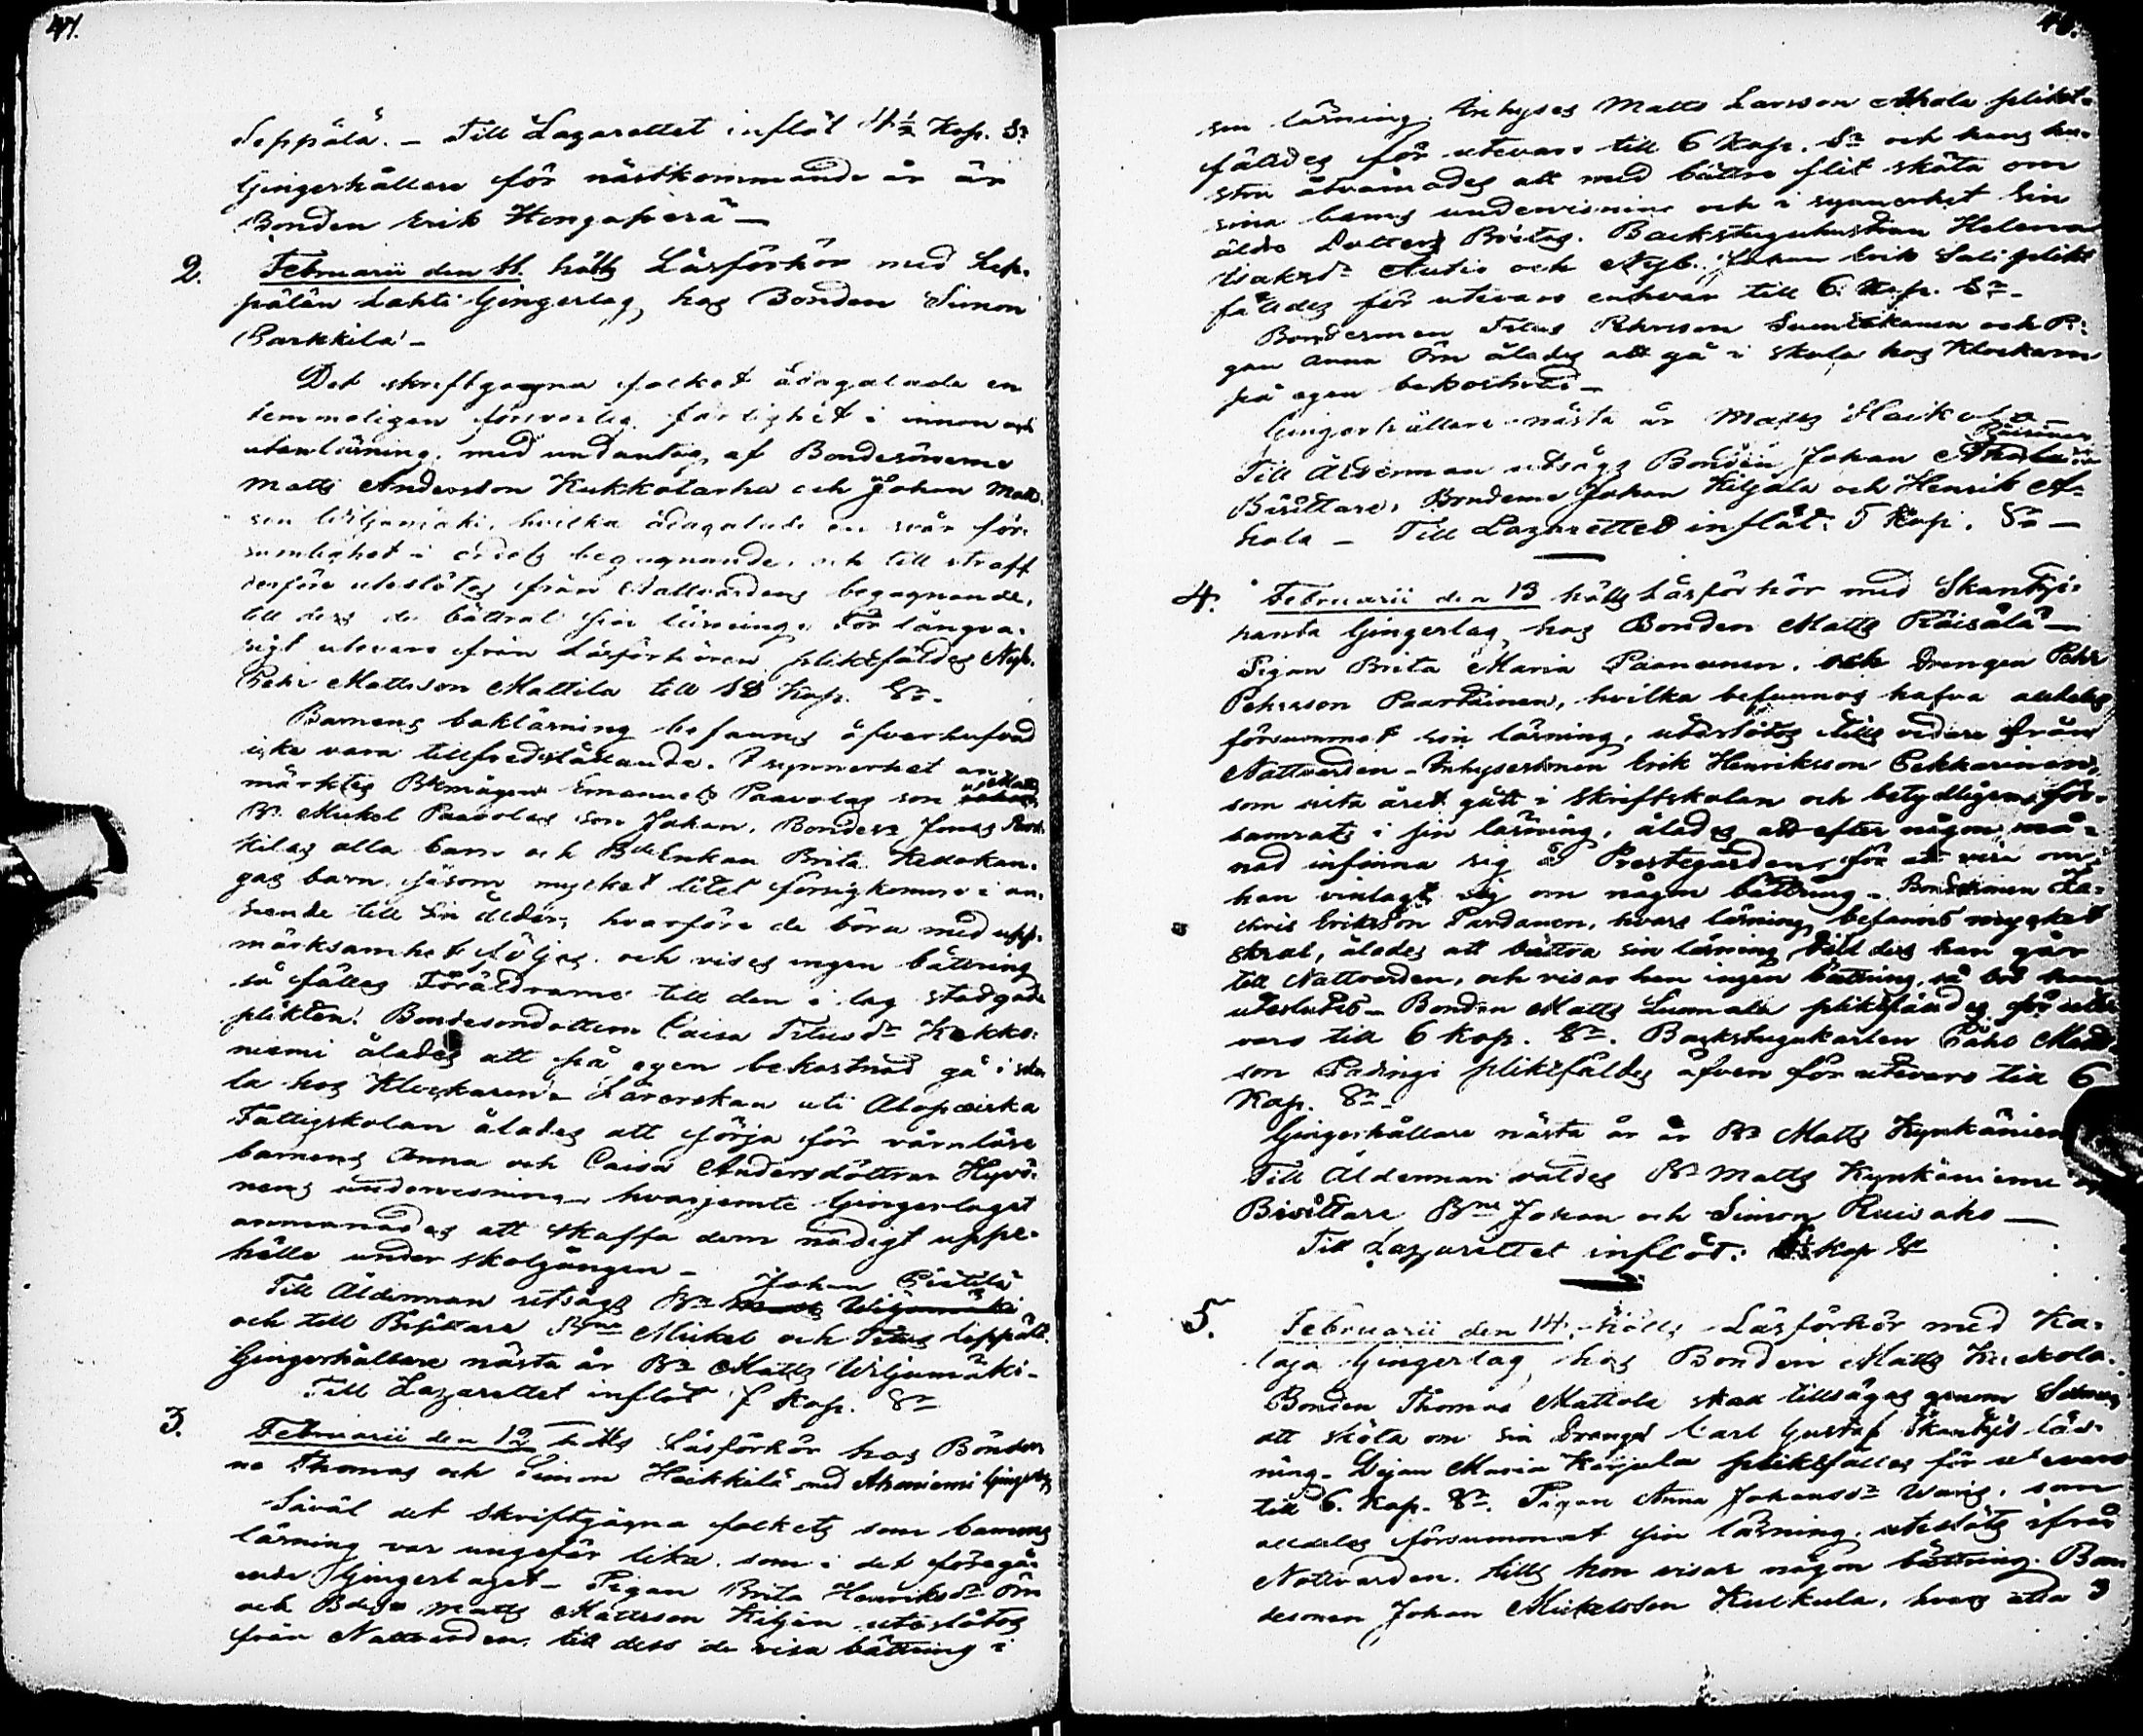 47.
Seppälä. – Till Lazarettet inflöt 4½ Kop. Sr
Gingerhållare för nästkommande år är
Bonden Erik Hongaperä –
2. Februarii den 11. hölls Läsförhör med Sep-
pälän Lahti Gingerlag, hos Bonden Simon
Parkkila –
Det skriftgagna folket ådagalade en
temmeligen försvarlig färdighet i innan och
utanläsning, med undantag af Bondesönerne
Matts Andersson Kukkolanha och Johan Matts-
son Wiljamäki, hvilka ådagalade en svår för-
sumlighet i ordets begagnande, och till straff
derföre uteslötos från Nattvardens begagnande,
till dess de bättrat sin läsning. För långva-
rigt utevaro från Läsförhören pliktfäldes Nyb.
Pehr Mattsson Mattila till 18 Kop. Sr.
Barnens bokläsning befanns öfverhufvud
icke vara tillfredsställande. I synnerhet an-
märktes Bdemågen Emanuel Paavolas son Matts
Bn Mickel Paavolas son Johan, Bonden Jonas Park-
kilas alla barn och BdeEnkan Brita Kellokan-
gas barn, såsom mycket litet försigkomne i an-
seende till sin ålder, hvarföre de böra med upp-
märksamhet följas, och vises ingen bättring
så fälles Föräldrarne till den i lag stadgade
plikten. Bondesondottern Caisa Titusdr Kokko-
niemi ålades att på egen bekostnad gå i sko-
la hos Klockaren. Lärerskan uti Alapäiska
Fattigskolan ålades att sörja för värnlösa
barnens Anna och Caisa Andersdöttrar Hyvö-
nens undervisning, hvarjemte Gingerlaget
anmanades att skaffa dem nödigt uppe-
hälle under skolgången –
Johan Pietilä
Till Ålderman utsågs Bn Matts Wiljamäki
och till Bisittare Bne Mickel och Titus Seppälä.
Gingerhållare nästa år Bn Matts Wiljamäki –
Till Lazarettet inflöt 5 Kop. Sr
3. Februarii den 12 hölls Läsförhör hos Bönder-
ne Thomas och Simon Heikkilä med Ahoniemi Gingerlag
Såväl det skriftgågna folkets som barnens
läsning var ungefär lika som i det föregå-
ende Gingerlaget – Pigan Brita Henriksdr Ön
och Bdes. Matts Mattsson Kiljän uteslötos
från Nattvarden, till dess de visa bättring i
48.
sin läsning. Inhyses Matts Larsson Ahola plikt-
fälldes för utevaro till 6 Kop. Sr och hans hu-
stru åtvarnades att med bättre flit sköta om
sina barns undervisning och i synnerhet sin
äldre Dotters Britas. Backstuguhustrun Helena
Isaksdr Autio och Nyb. Johan Erik Sali plikt-
fälldes för utevaro enhvar till 6 Kop. Sr –
Bondesonen Titus Pehrsson Suntikanen och Pi-
gan Anna Ön ålades att gå i skola hos Klockaren
på egen bekostnad –
Gingerhållare nästa år Matts Heikola –
Räisänen
Till Ålderman utsågs Bonden Johan Ahola
Bisittare, Bönderne Johan Kiljala och Henrik A-
hola – Till Lazarettet inflöt: 5 Kop. Sr –
4. Februarii den 13 hölls Läsförhör med Skantji-
ranta Gingerlag hos Bonden Matts Räisälä –
Pigan Brita Maria Paananen, och Drengen Pehr
Pehrsson Paartainen, hvilka befunnos hafva alldeles
försummat sin läsning, uteslötos tills vidare från
Nattvarden – Inhysesonen Erik Henriksson Pekkarinen,
som sista året gått i skriftskolan och betydligen för-
samrats i sin läsning, ålades att efter någon må-
nad infinna sig å Prestegården för att visa om
han vinlagt sig om någon bättring – Bondesonen Za-
chris Eriksson Pardanen, hvars läsning befanns mycket
skral, ålades att bättra sin läsning till dess han går
till Nattvarden, och visar han ingen bättring, så bör han
uteslutas – Bonden Matts Lunnala pliktfäldes för ute-
varo till 6 Kop. Sr. Backstugukarlen Påhl Matts-
son Padingi pliktfäldes äfven för utevaro till 6
Kop. Sr –
Gingerhållare nästa år är Bn Matts Kynkäniem
Till Ålderman valdes Bn Matts Kynkäniemi
Bisittare Bne Johan och Simon Ruisaho –
Till Lazarettet inflöt: Kop Sr
5. Februarii den 14. hölls Läsförhör med Ka-
laja Gingerlag hos Bonden Matts Kuckola.
Bonden Thomas Mattola skall tillsägas genom
att sköta om sin Drengs Carl Gustaf Skantjis läs-
ning. Dejan Maria Karjula pliktfälles för utevaro
till 6. Kop. Sr. Pigan Anna Johansdr Waris, som
alldeles försummat sin läsning, uteslöts ifrån
Nattvarden, tills hon visar någon bättring. Bon-
desonen Johan Mickelsson Kuckula, hvars alla 3